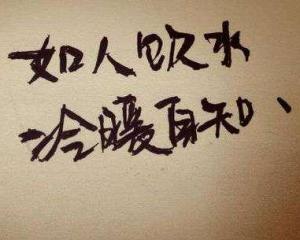 如人飲水
冷暖自知、